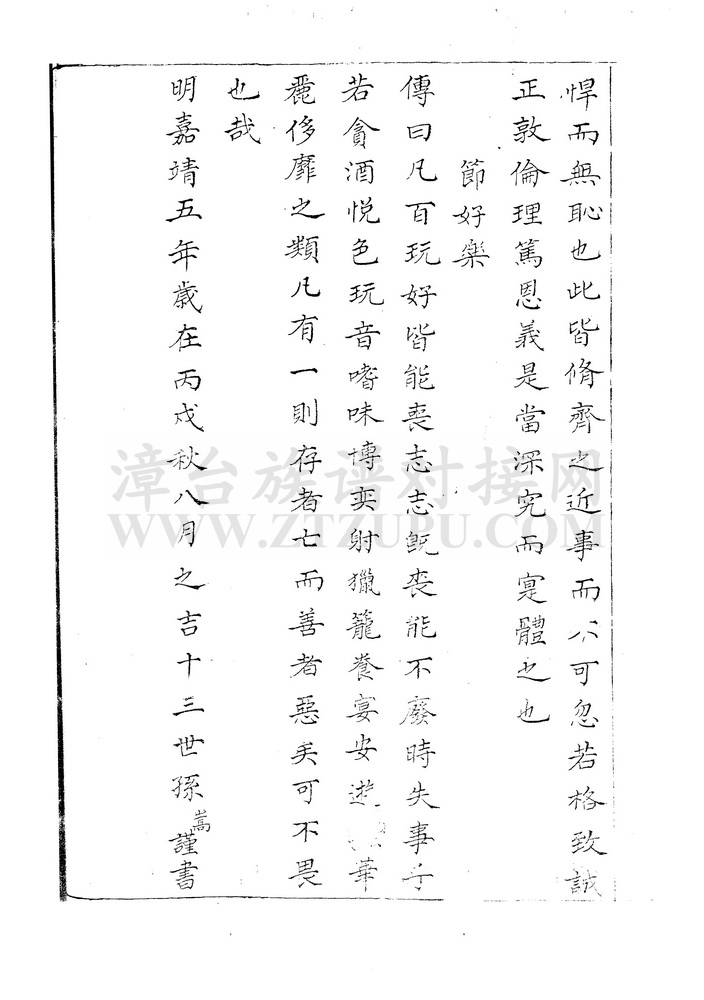 悍而無恥也此皆脩齊之近事而不可忽若格致誠
正敦倫理篤恩義是當深究而寔體之也
節好樂
傳曰凡百玩好皆能喪志志既喪能不廢時失事乎
若貪酒悅色玩音嗜味博奕射獵籠養宴安遊華
麗侈靡之類凡有一則存者七而善者惡矣可不畏
也哉
明嘉靖五年歲在丙戌秋八月之吉十三世孫嵩謹書
漳台族谱对接网
WWW.ZTZUPU.COM